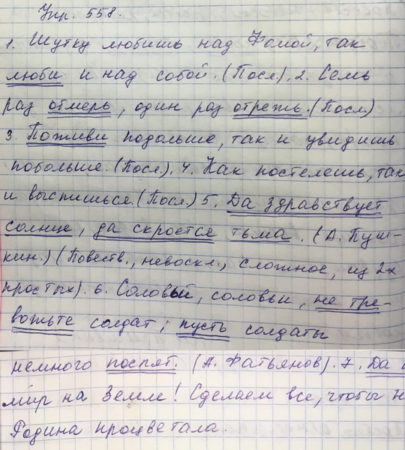 Упр. 558.
1. Шутку любишь над Фомой, так
люби и над собой. (Посл). 2. Семь
раз отмерь, один раз отрежь. (Посл)
3. Поживи подольше, так и увидишь
побольше. (Посл). 4. Как постелешь, так
и выспишься. (Посл.) 5. Да здравствует
солнце, да скроется тьма. (А. Пуш-
кин.) (Повеств., невоскл., сложное, из 2х
простых). 6. Соловьи, соловьи, не тре-
вожьте солдат; пусть солдаты
немного поспят. (А. Фатьянов). 7. Да
мир на Земле! Сделаем все, чтобы
Родина процветала.